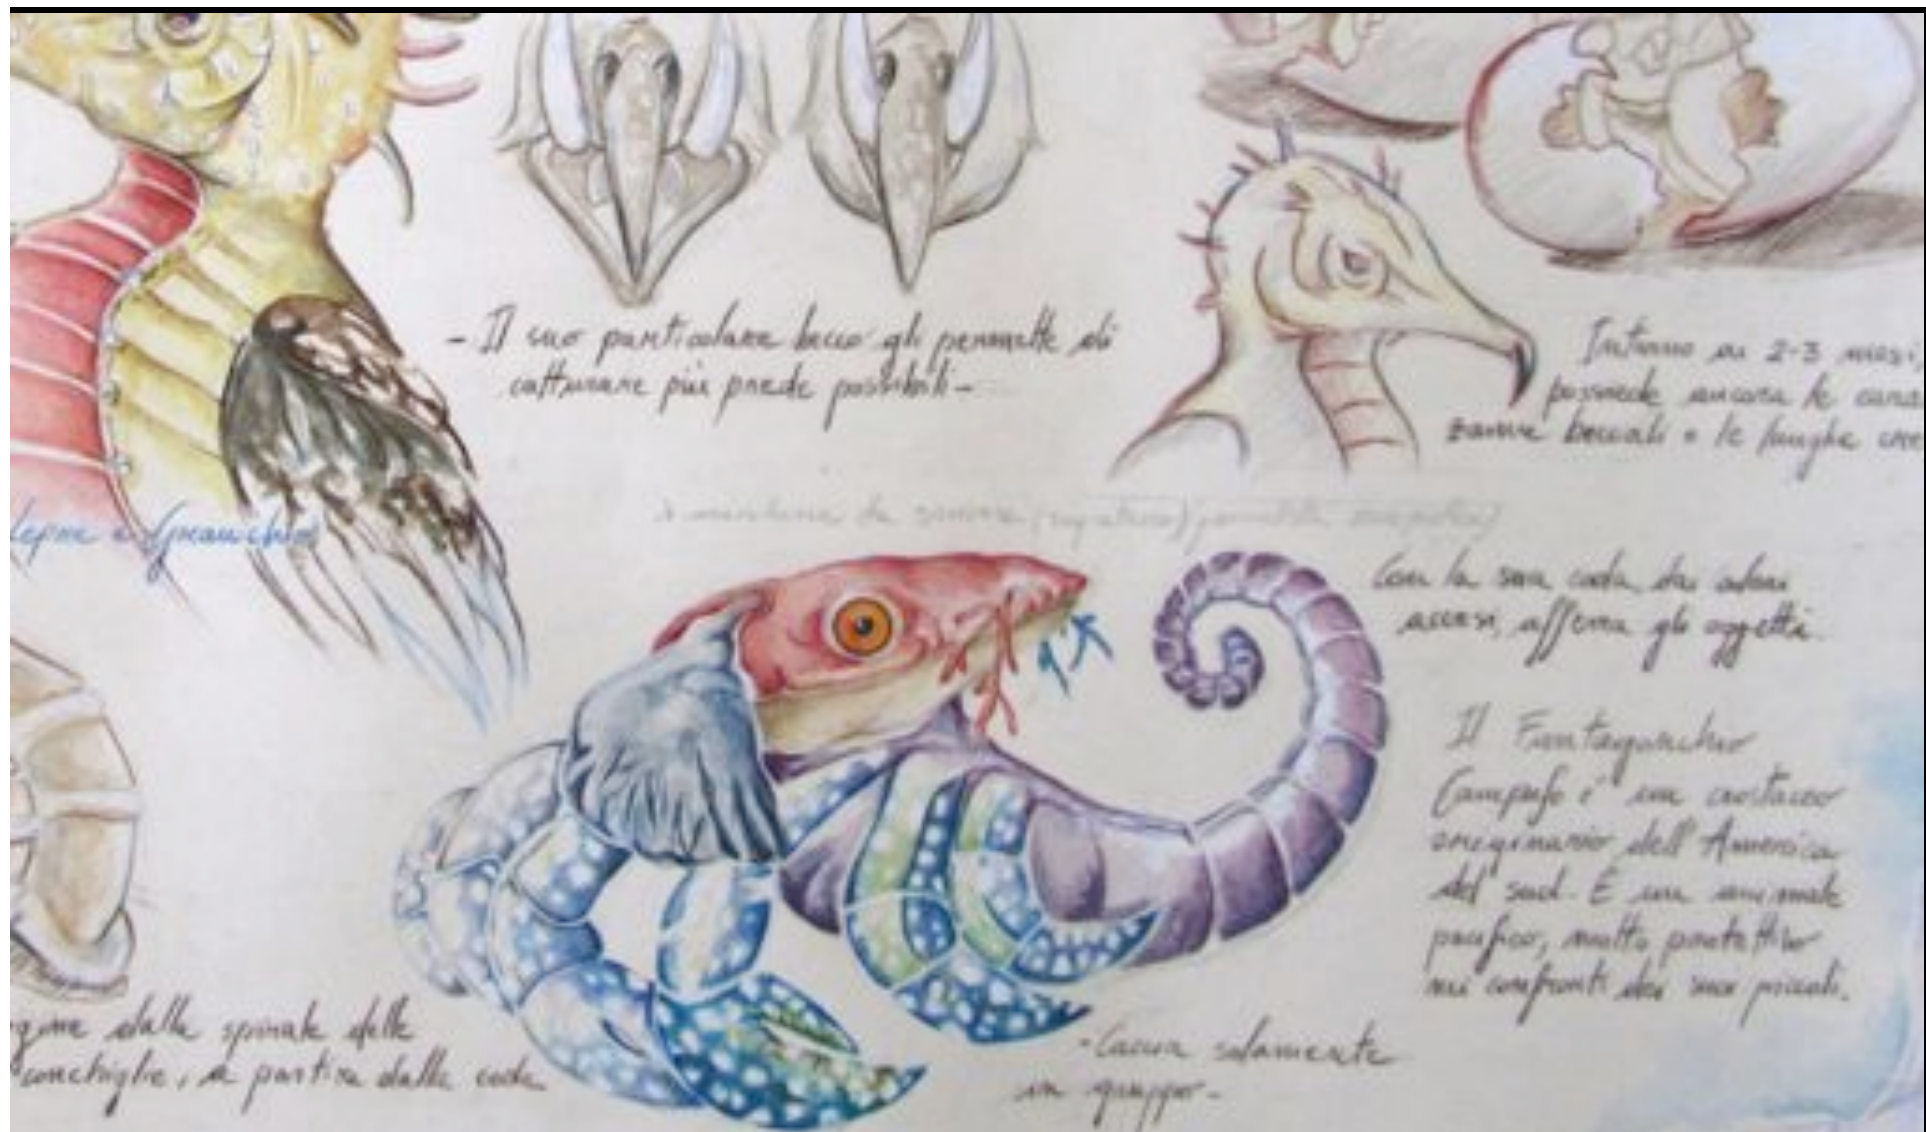 - Il suo particolare becco gli permette di
catturare più prede possibili -
Intorno ai 2-3 mesi,
possiede ancora le
zanne beccali e le lunghe
lepre e Granchio
Con la sua coda dai colori
accesi, afferra gli oggetti.
Il Fantagranchio
Campufo è un crostaceo
originario dell'America
del sud. È un animale
pacifico, molto protettivo
nei confronti dei suoi piccoli.
dalla spirale delle
conchiglie, a partire dalla coda
- Caccia solamente
in gruppo -